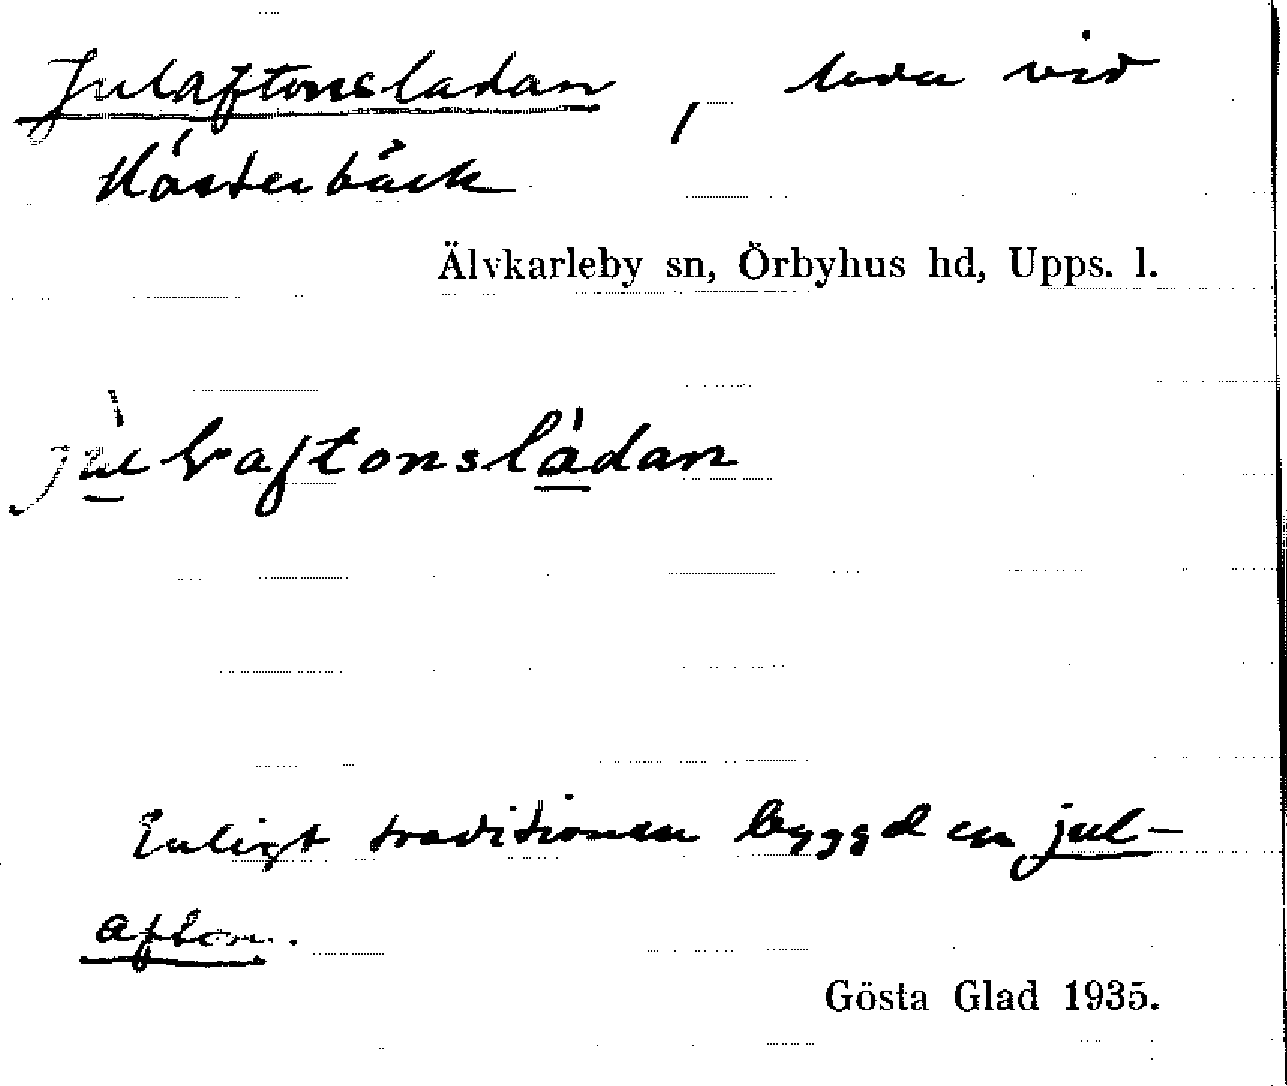 Julaftonsladan, lada vid
Klösterbäck
Älvkarleby sn, Örbyhus hd, Upps. l.
Enligt traditionen byggd en jul-
afton.
Gösta Glad 1935.